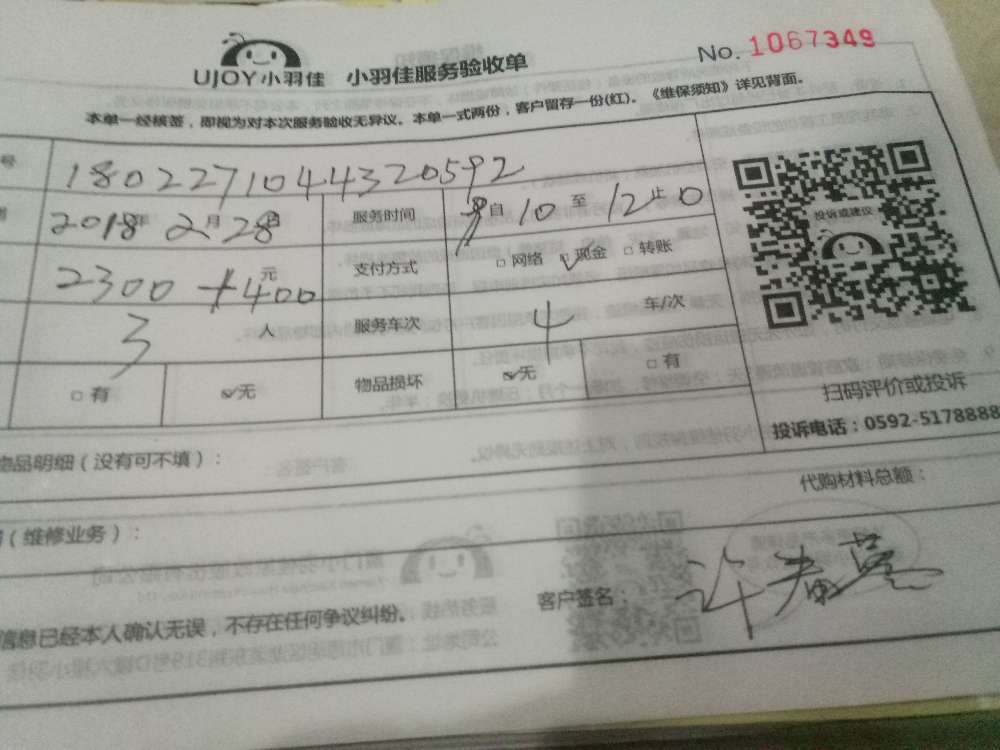 UJOY小羽佳 小羽佳服务验收单 No. 1067349
本单一经核签，即视为对本次服务验收无异议。本单一式两份，客户留存一份(红)。《维保须知》详见背面。
号 1802271044320592
2018年 2月 28日 服务时间 自 10 至 12止0
2300 +400 元 支付方式 □ 网络 ☑ 现金 □ 转账
3 人 服务车次 4 车/次
□ 有 ☑无 物品损坏 ☑无 □ 有
投诉或建议
扫码评价或投诉
投诉电话：0592-5178888
物品明细（没有可不填）：
代购材料总额：
（维修业务）：
客户签名： 许
信息已经本人确认无误，不存在任何争议纠纷。